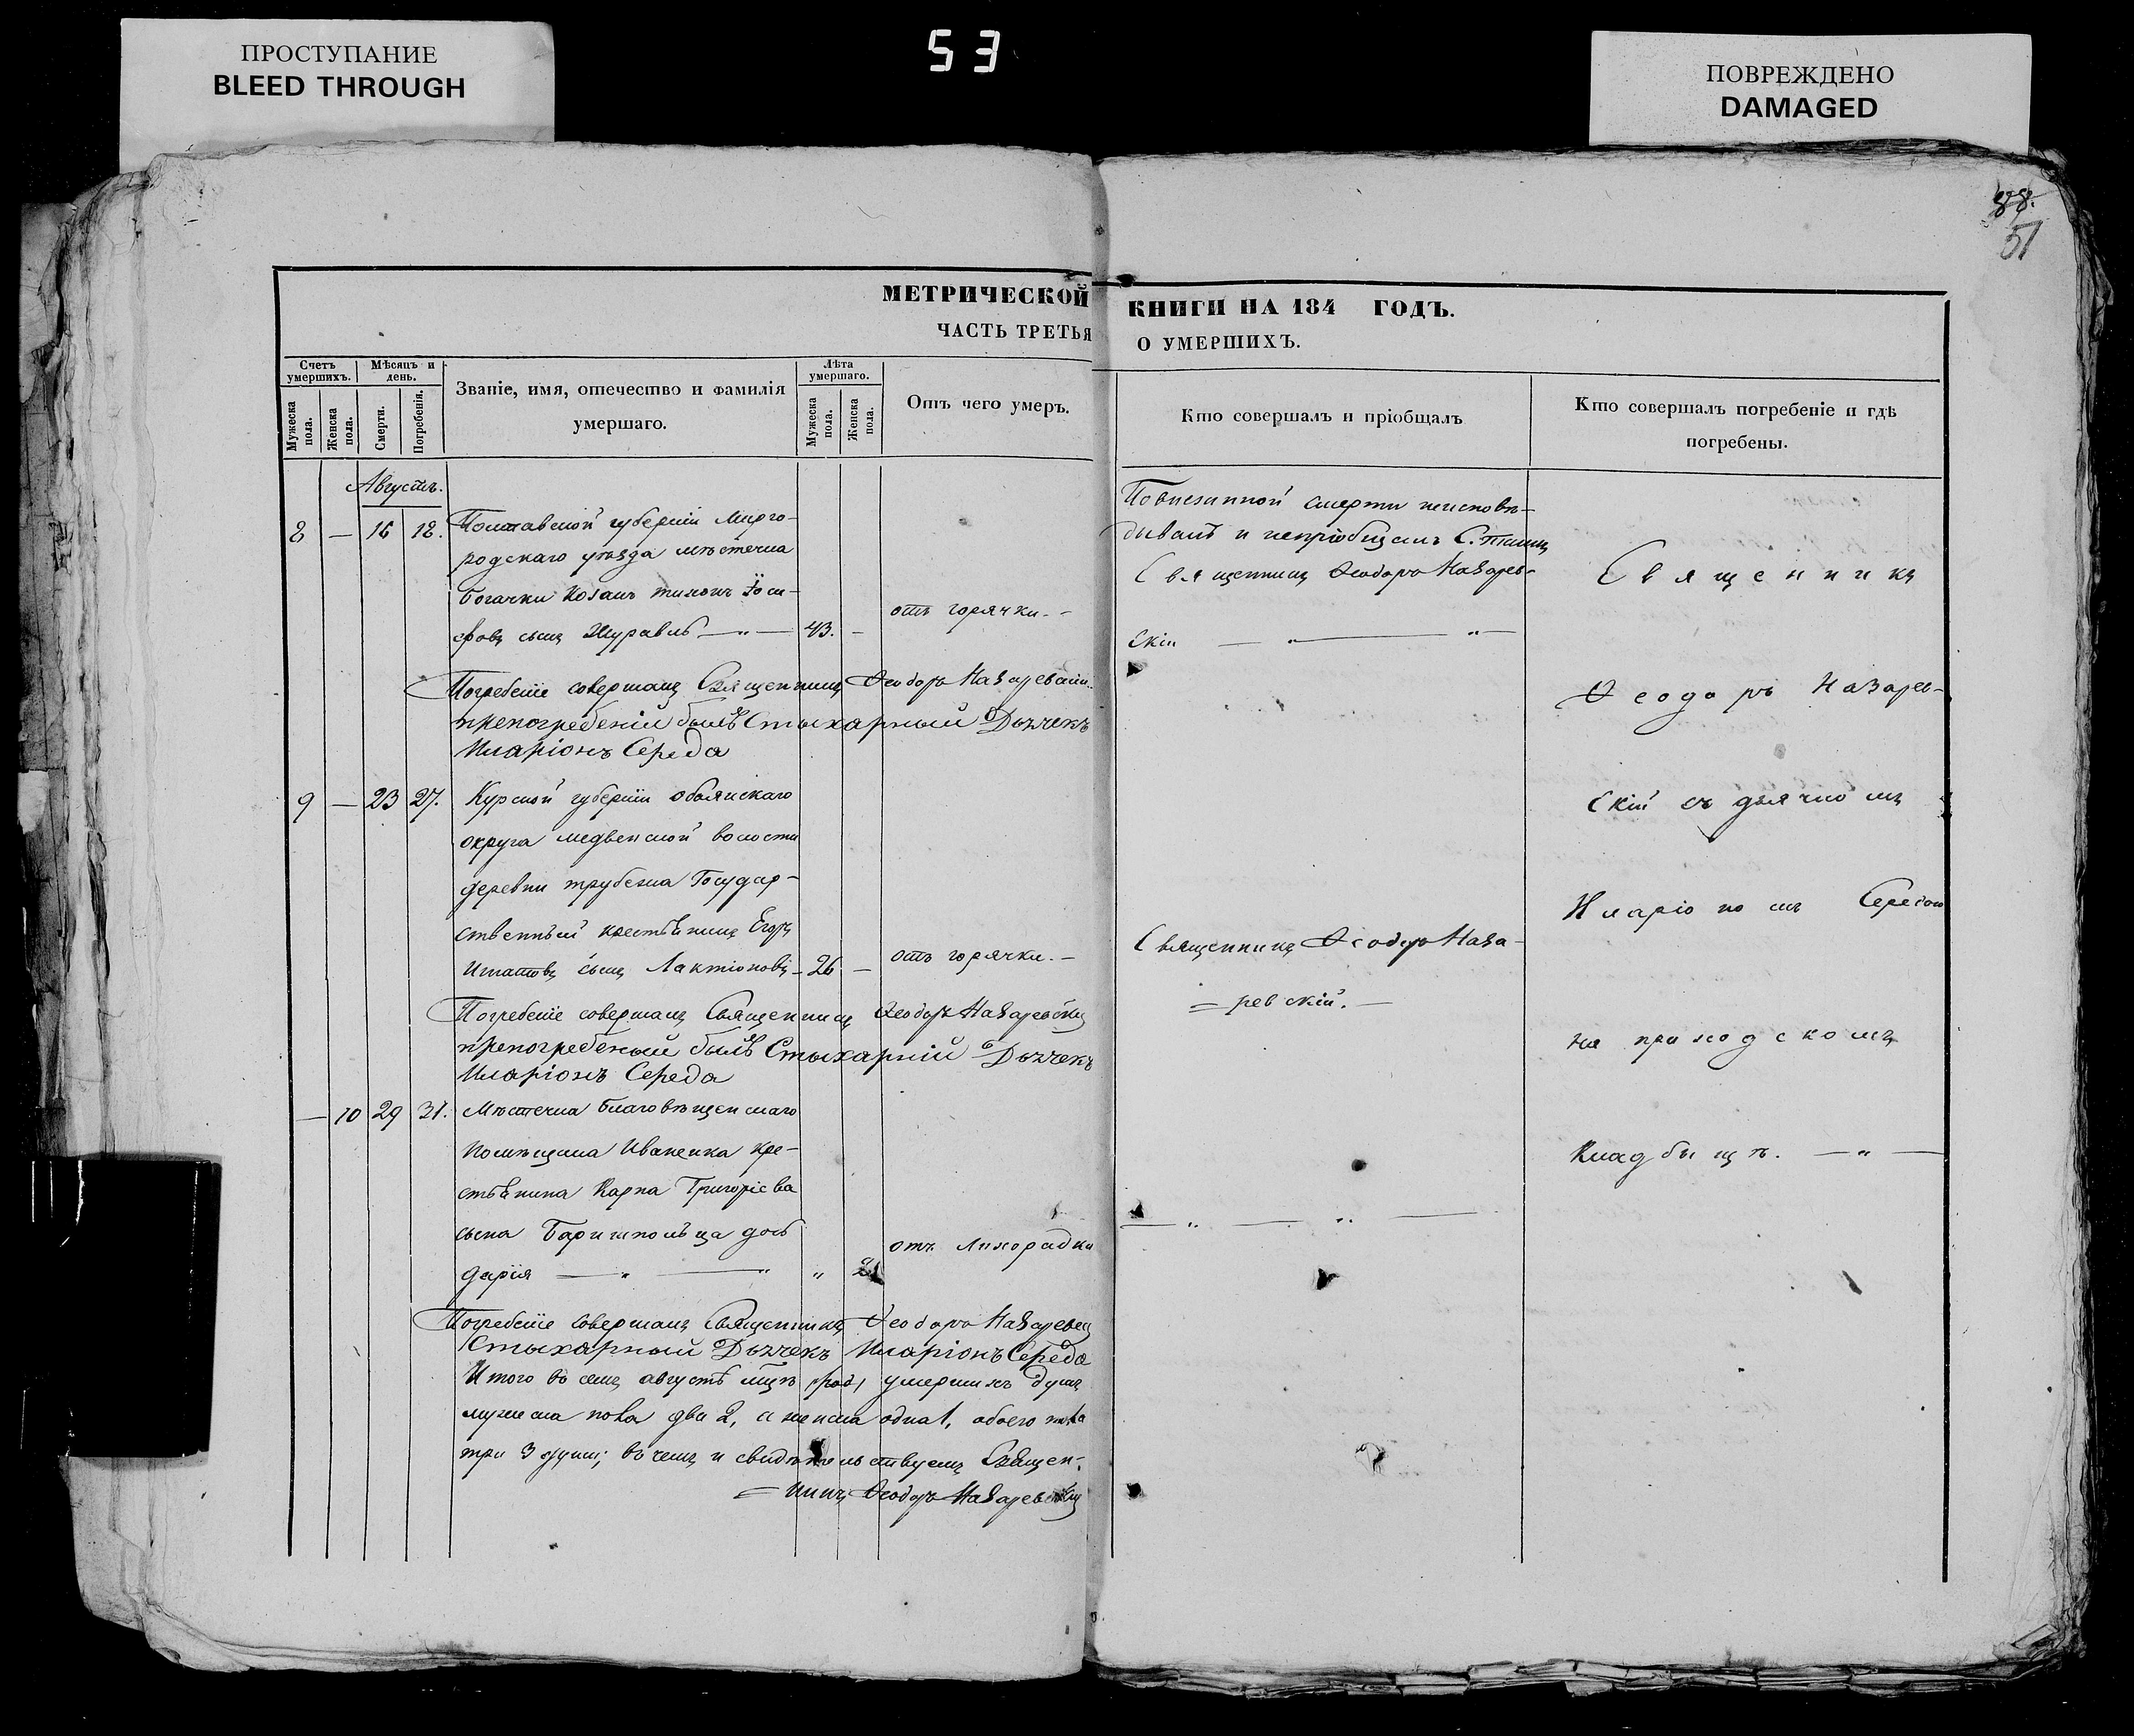 ПРОСТУПАНИЕ
BLEED THROUGH
53
ПОВРЕЖДЕНО
DAMAGED
88.
51
МЕТРИЧЕСКОЙ КНИГИ НА 184 ГОДЪ.
ЧАСТЬ ТРЕТЬЯ О УМЕРШИХЪ.
Счетъ умершихъ.
Мужеска пола.
Женска пола.
Мѣсяцъ и день.
Смерти.
Погребенія.
Званіе, имя, отечество и фамилія умершаго.
Лѣта умершаго.
Мужеска пола.
Женска пола.
Отъ чего умеръ.
Кто совершалъ и пріобщалъ
Кто совершалъ погребеніе и гдѣ погребены.
Августъ.
8 — 16 18. Полтавской губерніи Мирго-
родскаго уѣзда мѣстечка
Богачки козакъ Тихонъ Іоси-
фовъ сынъ Журавль — " — 43. —
отъ горячки. —
Погребеніе совершалъ Священникъ Ѳеодоръ Назаревскій
припогребеніи былъ Стыхарный Дьячекъ
Иларіонъ Середа
9 — 23 27. Курской губерніи Обоянскаго
округа медвенской волости
деревни трубежа Государ-
ственный крестьянинъ Егоръ
сынъ Лактіоновъ — 26 —
отъ горячки. —
Погребеніе совершалъ Священникъ Ѳеодоръ Назаревскій
припогребеный былъ Стыхарній Дьячекъ
Иларіонъ Середа
— 10 29 31. Мѣстечка Благовѣщенскаго
помѣщика Иваненка кре-
стьянина Карпа Григоріева
сына Баришпольца дочь
Дарія — " — " "
отъ Лихорадки
Погребеніе совершалъ Священникъ Ѳеодоръ Назаревск
Стыхарный Дьячекъ Иларіонъ Середа
Итого въ семъ августѣ мцѣ умершихъ душъ
мужска пола два 2, а женска одна 1, обоего пола
три 3 души; въ чемъ и свидѣтельствуемъ Священ-
= никъ Ѳеодоръ Назаревскій
Повнезапной смерти неисповѣ-
дыванъ и непріобщенъ С. Таинъ
Священникъ Ѳеодоръ Назарев-
скій — " — " —
Священникъ Ѳеодоръ Наза-
= ревскій. —
— " — " —
Священникъ
Ѳеодоръ Назарев-
скій съ дьячкомъ
Иларіономъ Середою
на приходскомъ
Кладбищѣ. — " —